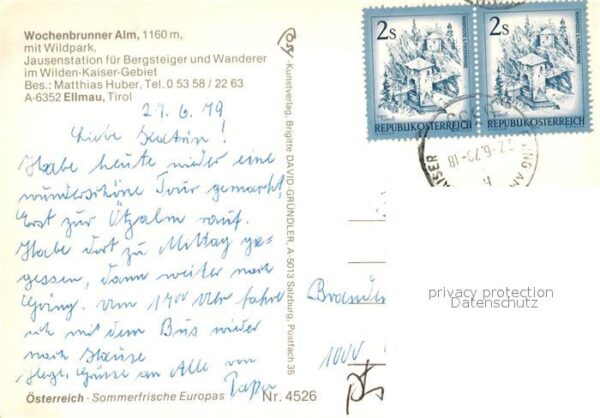 Wochenbrunner Alm, 1160 m,
mit Wildpark.
Jausenstation für Bergsteiger und Wanderer
im Wilden-Kaiser-Gebiet
Bes.: Matthias Huber, Tel. 0 53 58 / 22 63
A-6352 Ellmau, Tirol
27.6.79
Liebe !
Habe heute wieder eine
wunderschöne Tour gemacht,
Erst zur rauf.
Habe dort zu Mittag ge-
gessen, dann weiter nach
Going. Um 1700 Uhr fahre
ich mit dem Bus wieder
nach Hause
Herzl. Grüsse an Alle von
Papa
Österreich - Sommerfrische Europas Nr. 4526
Kunstverlag, Brigitte DAVID-GRÜNDLER, A-5013 Salzburg, Postfach 35
2s
REPUBLIK ÖSTERREICH
2s
REPUBLIK ÖSTERREICH
KAISER
27.-6.79-18
1000
privacy protection
Datenschutz